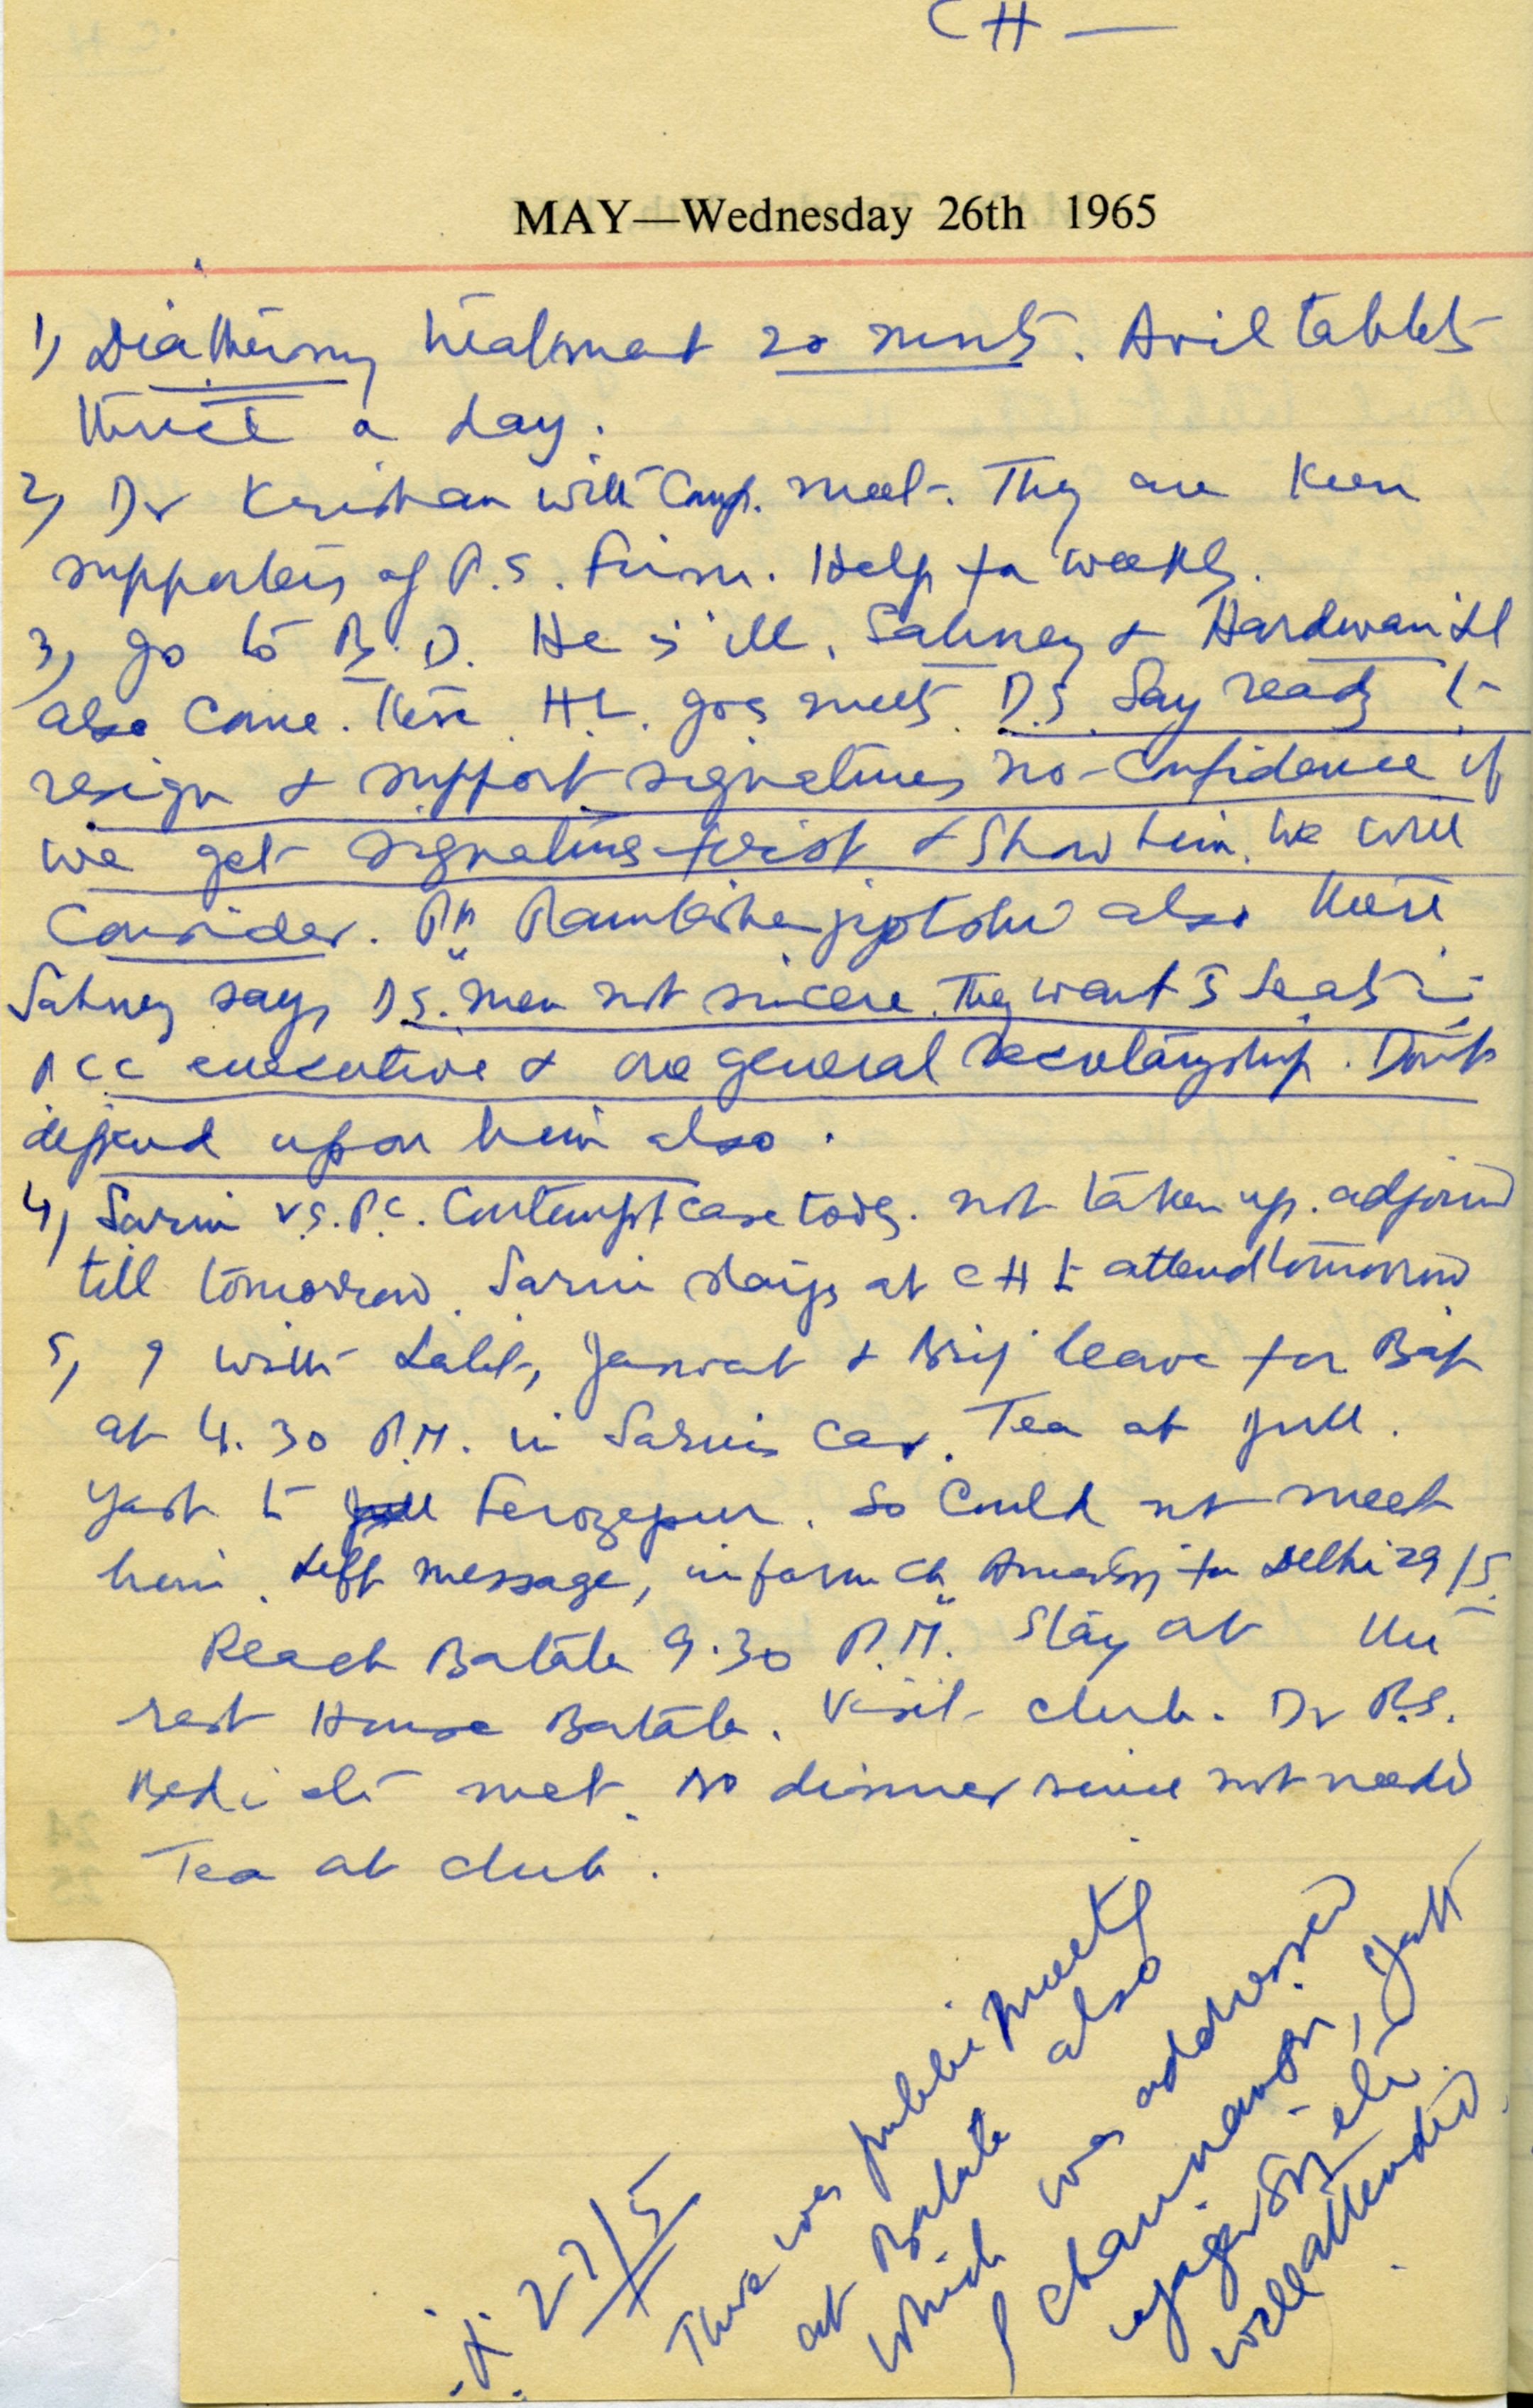 CH —
MAY—Wednesday 26th 1965
1) Diathermy treatment 20 mnts. Avil tablets
thrice a day.
2) Dr Krishan with Comp. meet. They are Keen
supporters of P.S. Firm. Help for weekly.
3) go to B.D. He is ill. Sahney & Hardwarilal
also came. Here H.L. goes meets D.S. Say ready to
resign & support signatures no-confidence if
we get signatures first & Show him. We will
Consider. Pt. also there
Sahney says DS. men not sincere. They want 5 seats in
PCC executive & one general secretaryship. Don't
depend upon him also.
4) Sarin vs. P.C. Contempt case today. not taken up. adjorned
till tomorrow. Sarin stays at CH to attend tomorrow
5) I with Lalit, Jaswant & Brij leave for
at 4.30 P.M. in Sarin's car. Tea at Jull.
Yash to Jull Ferozepur. So Could not meet
him. Left message, inform Ch. for Delhi 29/5.
Reach Batala 9.30 P.M. Stay at the
rest House Batala. Visit club. Dr P.S.
Bedi etc met. No dinner since not needed
Tea at club.
27/5
There was public meetg
at Batala also
which was addressed
by Channan Sn, Jatt
ujagar Sn etc.
well attended.